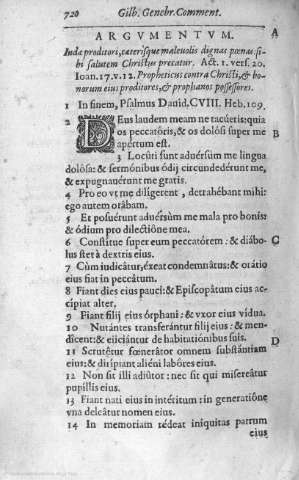 720 Gilb. Genebr. Comment.
ARGVMENTVM. A
Iudæ proditori, cæterisque maleuolis dignas pœnas: si-
bi salutem Christus precatur. Act. 1. vers. 20.
Ioan. 17. v. 12. Propheticus contra Christi, & bo-
norum eius proditores, & prophanos possessores.
1 In finem, Psalmus Dauid. CVIII. Heb. 109.
2 DEus laudem meam ne tacúeris: quia
os peccatóris, & os dolósi super me B
apértum est.
3 Locúti sunt aduérsùm me lingua
dolósa: & sermónibus ódij circundedérunt me,
& expugnauérunt me gratis.
4 Pro eo vt me diligerent, detrahébant mihi:
ego autem orábam.
5 Et posuérunt aduérsùm me mala pro bonis:
& ódium pro dilectióne mea.
6 Constítue super eum peccatórem: & diábo- C
lus stet à dextris eius.
7 Cùm iudicátur, éxeat condemnátus: & orátio
eius fiat in peccátum.
8 Fiant dies eius pauci: & Episcopátum eius ac-
cípiat alter.
9 Fiant filij eius órphani: & vxor eius vídua.
10 Nutántes transferántur filij eius: & men-
dícent: & eijciántur de habitatiónibus suis. D
11 Scrutétur fœnerátor omnem substántiam
eius: & dirípiant aliéni labóres eius.
12 Non sit illi adiútor: nec sit qui misereátur
pupíllis eius.
13 Fiant nati eius in intéritum: in generatióne
vna deleátur nomen eius.
14 In memoriam rédeat iníquitas patrum
eius